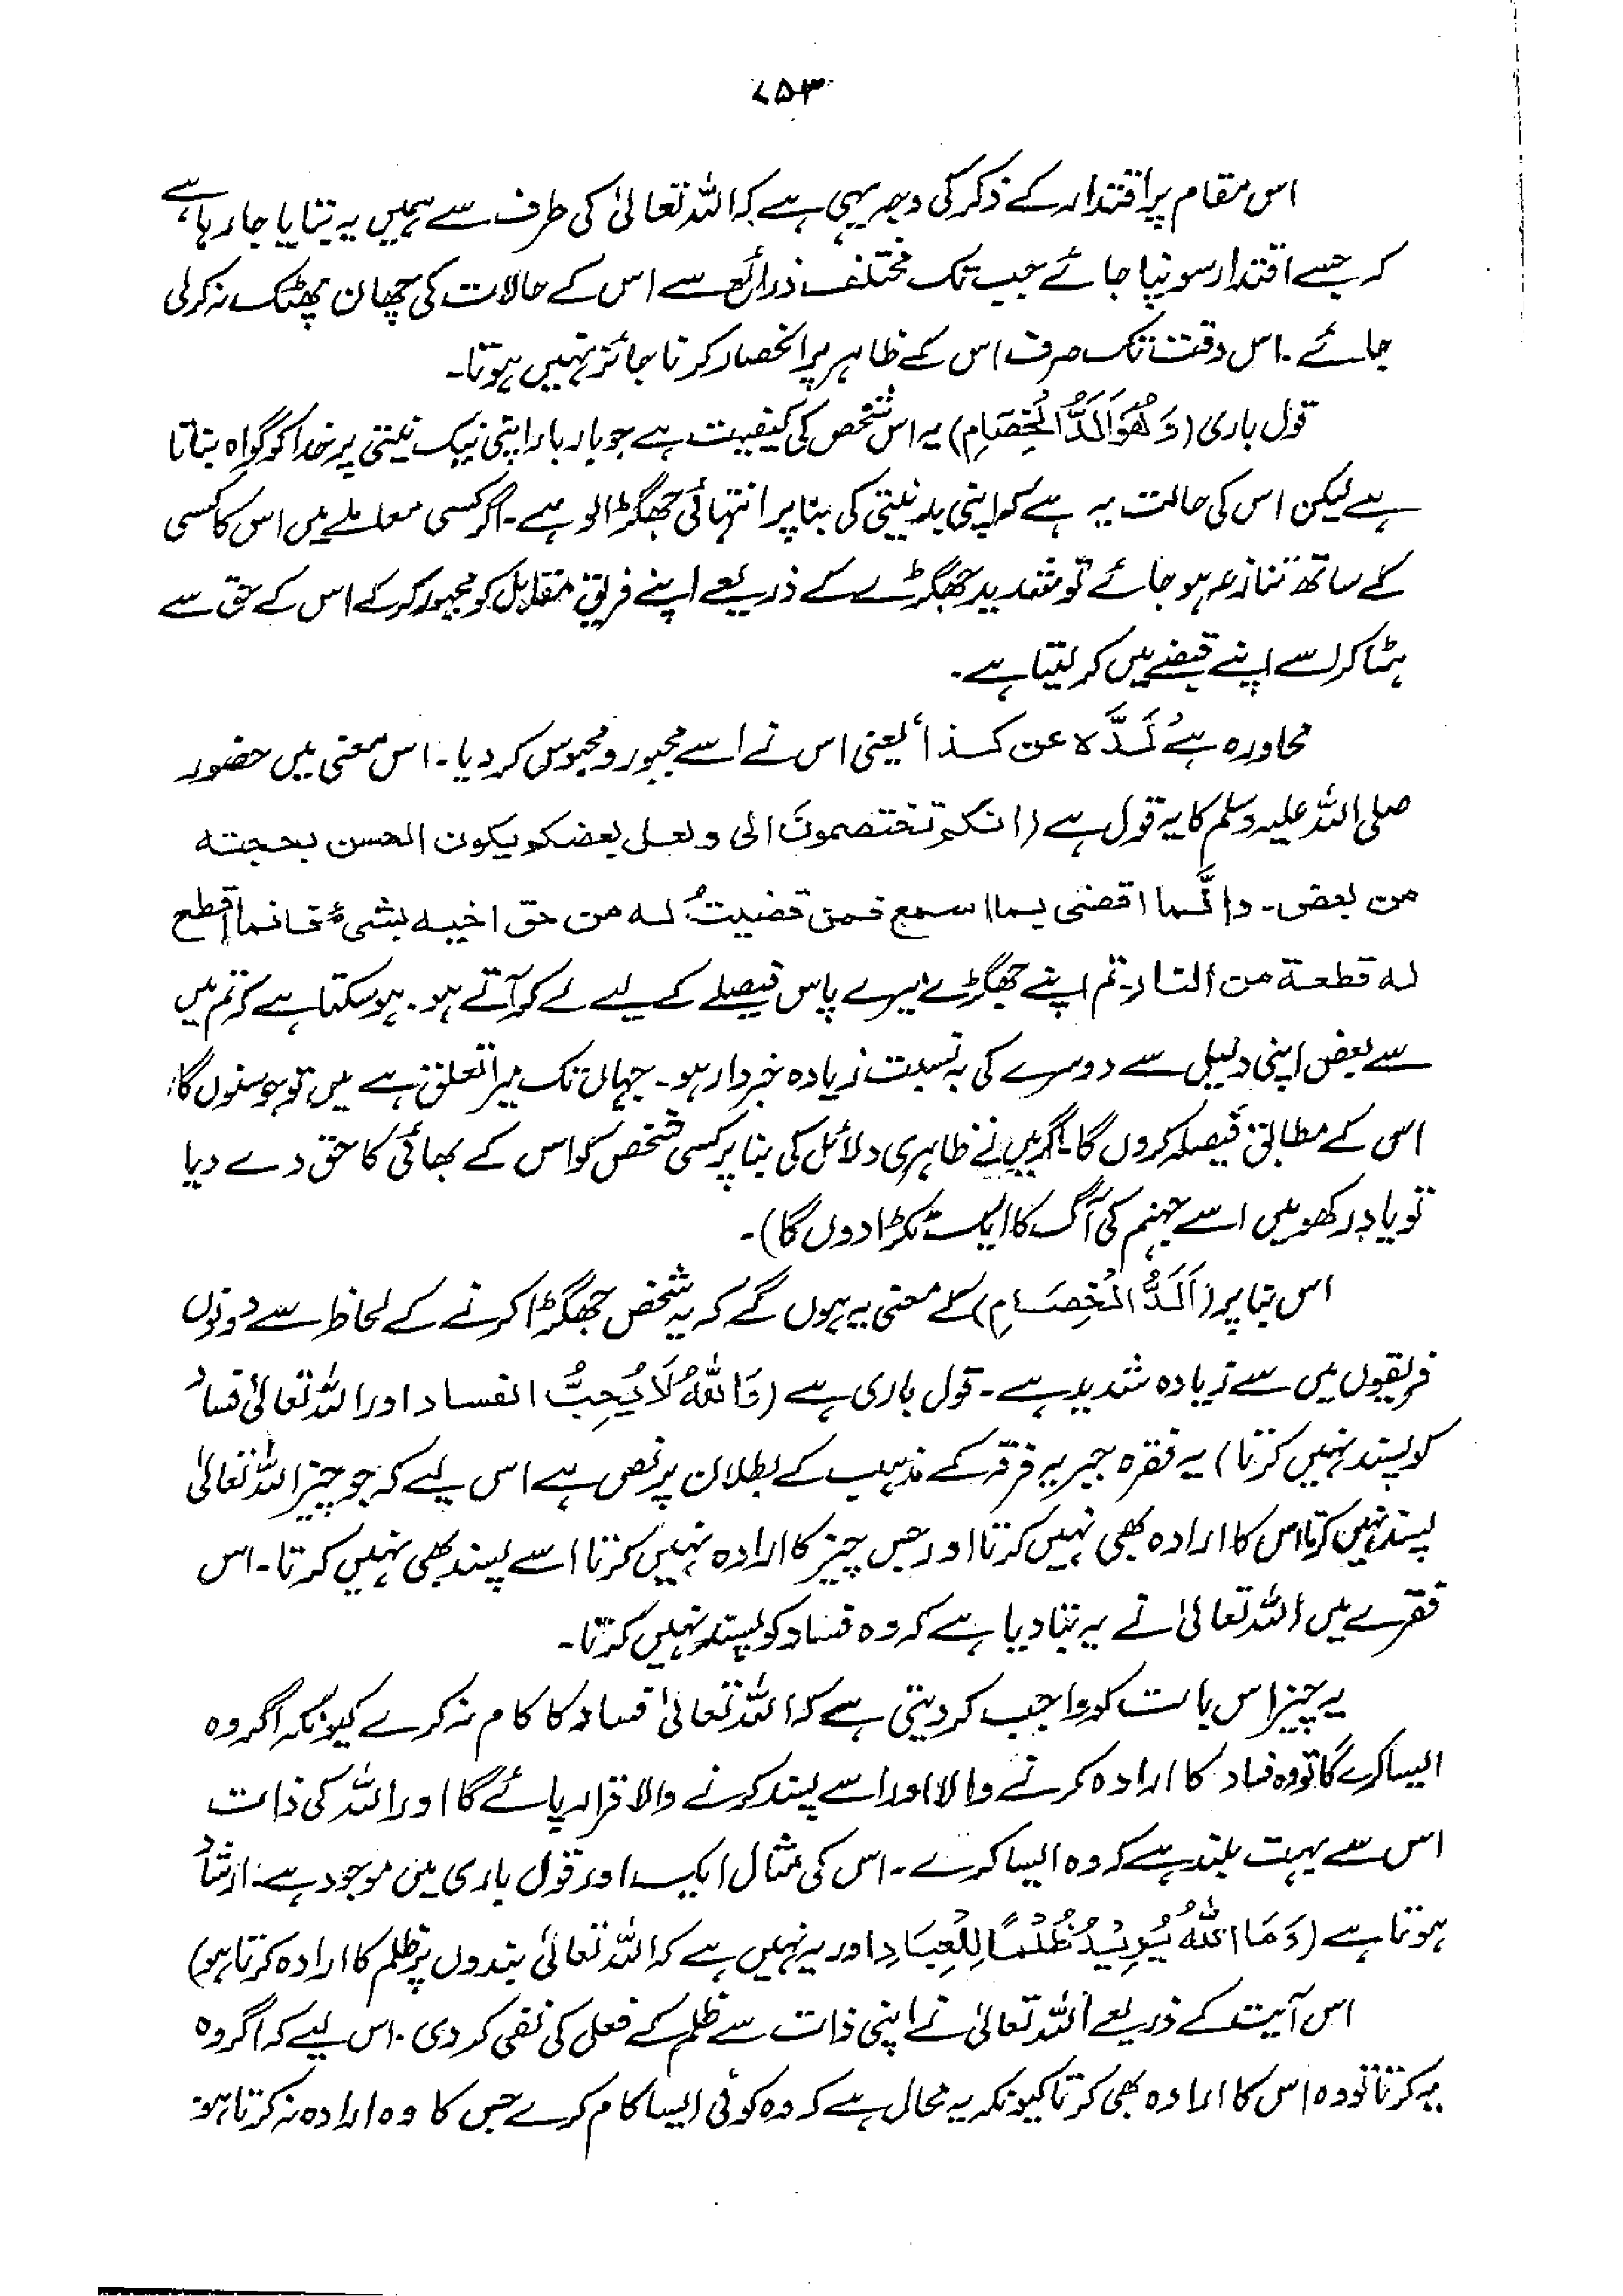 ۷۵۳
اس مقام پر اقتدار کے ذکر کی وجہ یہی ہے کہ اللہ تعالیٰ کی طرف سے ہمیں یہ بتایا جا رہا ہے
کہ جسے اقتدار سونپا جائے جب تک مختلف ذرائع سے اس کے حالات کی چھان پھٹک نہ کر لی
جائے ۔ اس وقت تک صرف اس کے ظاہر پر انحصار کرنا جائز نہیں ہوتا۔
قول باری (وَهُوَ اَلَدُّ الْخِصَامِ) یہ اس شخص کی کیفیت ہے جو بار بار اپنی نیک نیتی پر خدا کو گواہ بناتا
ہے لیکن اس کی حالت یہ ہے کہ اپنی بدنیتی کی بنا پر انتہائی جھگڑالو ہے۔ اگر کسی معاملے میں اس کا کسی
کے ساتھ تنازعہ ہو جائے تو شدید جھگڑے کے ذریعے اپنے فریق مقابل کو مجبور کر کے اس کے حق سے
ہٹا کر اسے اپنے قبضے میں کر لیتا ہے ۔
محاورہ ہے لَدَّہ عن کذا یعنی اس نے اسے مجبور و محبوس کر دیا ۔ اس معنی میں حضور
صلی اللہ علیہ وسلم کا یہ قول ہے (انکم تختصمونَ الی ولعل بعضکم یکون الحسن بحجتہ
من بعض۔ وانَّما اقضی بما اسمع فمن قضیتُ لہ من حق اخیہ بشیءٍ فانما اقطع
لہ قطعة من النار۔ تم اپنے جھگڑے میرے پاس فیصلے کے لیے لے کر آتے ہو۔ ہو سکتا ہے کہ تم میں
سے بعض اپنی دلیل سے دوسرے کی بہ نسبت زیادہ خبردار ہو۔ جہاں تک میرا تعلق ہے میں تو جو سنوں گا
اسی کے مطابق فیصلہ کروں گا۔ اگر میں نے ظاہری دلائل کی بنا پر کسی شخص کو اس کے بھائی کا حق دے دیا
تو یاد رکھو میں اسے جہنم کی آگ کا ایک ٹکڑا دوں گا)۔
اس بنا پر (اَلَدُّ الْخِصَامِ) کے معنی یہ ہوں گے کہ یہ شخص جھگڑا کرنے کے لحاظ سے دونوں
فریقوں میں سے زیادہ شدید ہے ۔ قول باری ہے (وَاللّٰهُ لَا يُحِبُّ الفساد اور اللہ تعالیٰ فساد
کو پسند نہیں کرتا) یہ فقرہ جبریہ فرقہ کے مذہب کے بطلان پر نص ہے اس لیے کہ جو چیز اللہ تعالیٰ
پسند نہیں کرتا اس کا ارادہ بھی نہیں کرتا اور جس چیز کا ارادہ نہیں کرتا اسے پسند بھی نہیں کرتا ۔ اس
فقرے میں اللہ تعالیٰ نے یہ بتا دیا ہے کہ وہ فساد کو پسند نہیں کرتا۔
یہ چیز اس بات کو واجب کر دیتی ہے کہ اللہ تعالیٰ فساد کا کام نہ کرے کیونکہ اگر وہ
ایسا کرے گا تو وہ فساد کا ارادہ کرنے والا اور اسے پسند کرنے والا قرار پائے گا اور اللہ کی ذات
اس سے بہت بلند ہے کہ وہ ایسا کرے ۔ اس کی مثال ایک اور قول باری میں موجود ہے۔ ارشاد
ہوتا ہے (وَمَا اللّٰهُ يُرِيْدُ ظُلْمًا لِلْعِبَادِ اور یہ نہیں ہے کہ اللہ تعالیٰ بندوں پر ظلم کا ارادہ کرتا ہو)
اس آیت کے ذریعے اللہ تعالیٰ نے اپنی ذات سے ظلم کے فعل کی نفی کر دی ۔ اس لیے کہ اگر وہ
یہ کرتا تو وہ اس کا ارادہ بھی کرتا کیونکہ یہ محال ہے کہ وہ کوئی ایسا کام کرے جس کا وہ ارادہ نہ کرتا ہو